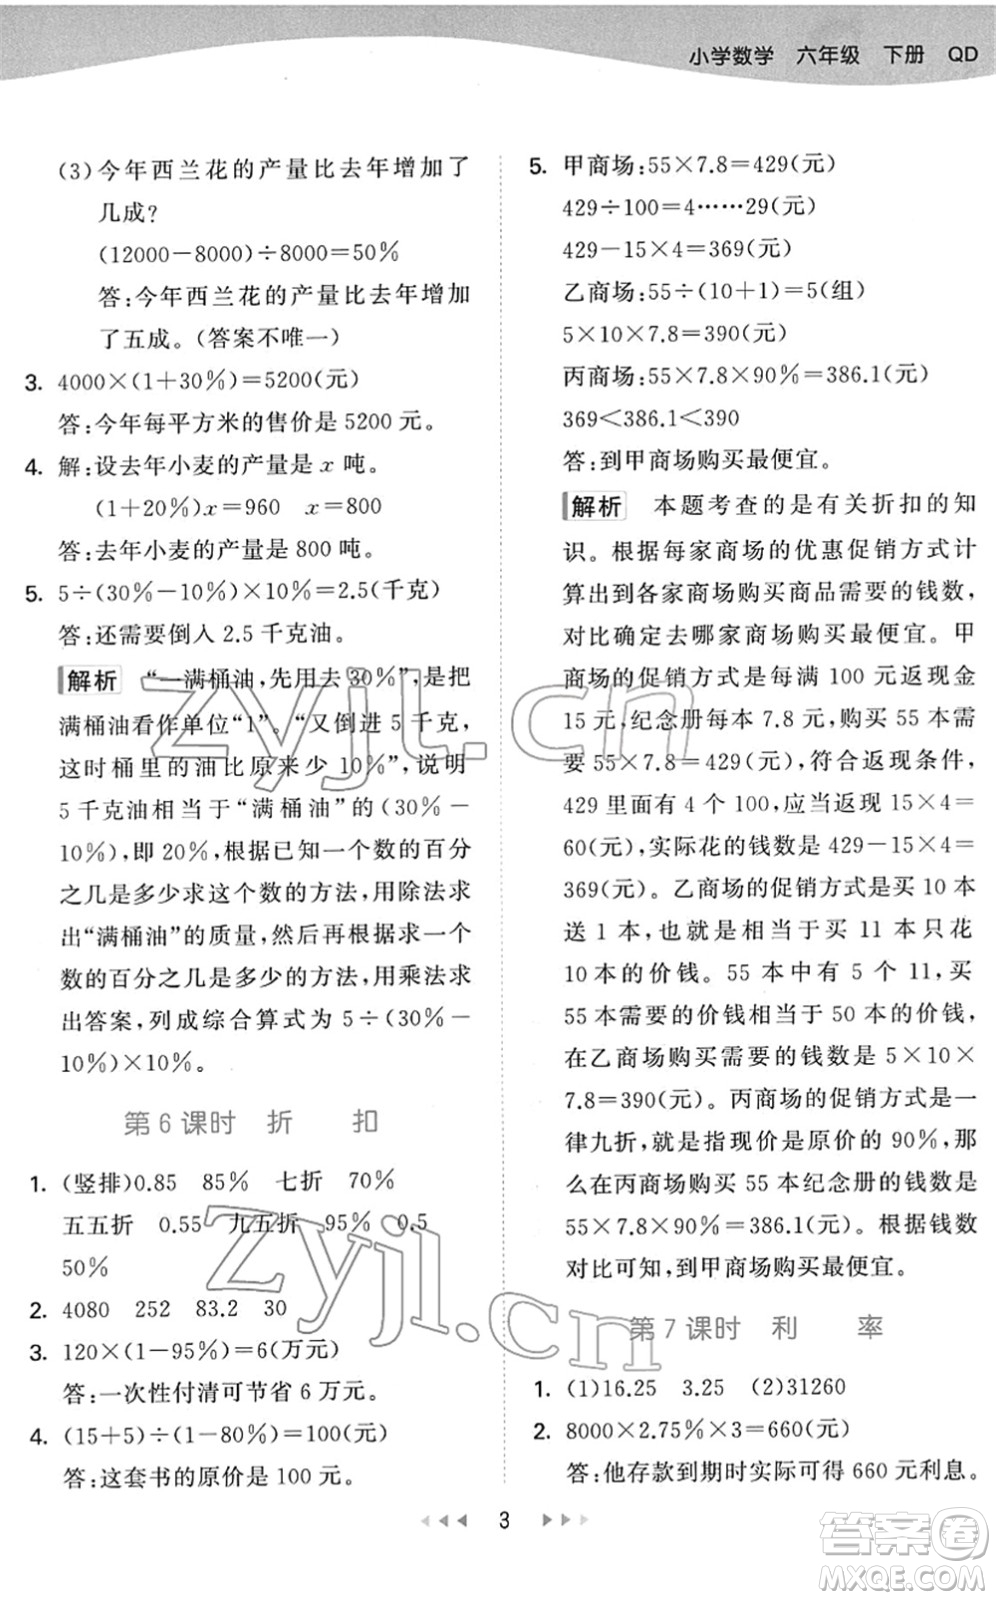 小学数学 六年级 下册 QD
(3)今年西兰花的产量比去年增加了
几成?
(12000－8000)÷8000＝50%
答:今年西兰花的产量比去年增加
了五成。(答案不唯一)
3. 4000×(1＋30%)＝5200(元)
答:今年每平方米的售价是 5200 元。
4. 解:设去年小麦的产量是 x 吨。
(1＋20%)x＝960 x＝800
答:去年小麦的产量是 800 吨。
5. 5÷(30%－10%)×10%＝2.5(千克)
答:还需要倒入 2.5 千克油。
解析 “一满桶油,先用去 30%”,是把
满桶油看作单位“1”。“又倒进 5 千克,
这时桶里的油比原来少 10%”,说明
5 千克油相当于“满桶油”的(30%－
10%),即 20%,根据已知一个数的百分
之几是多少求这个数的方法,用除法求
出“满桶油”的质量,然后再根据求一个
数的百分之几是多少的方法,用乘法求
出答案,列成综合算式为 5÷(30%－
10%)×10%。
第 6 课时 折 扣
1. (竖排)0.85 85% 七折 70%
五五折 0.55 九五折 95% 0.5
50%
2. 4080 252 83.2 30
3. 120×(1－95%)＝6(万元)
答:一次性付清可节省 6 万元。
4. (15＋5)÷(1－80%)＝100(元)
答:这套书的原价是 100 元。
5. 甲商场:55×7.8＝429(元)
429÷100＝4……29(元)
429－15×4＝369(元)
乙商场:55÷(10＋1)＝5(组)
5×10×7.8＝390(元)
丙商场:55×7.8×90%＝386.1(元)
369＜386.1＜390
答:到甲商场购买最便宜。
解析 本题考查的是有关折扣的知
识。根据每家商场的优惠促销方式计
算出到各家商场购买商品需要的钱数,
对比确定去哪家商场购买最便宜。甲
商场的促销方式是每满 100 元返现金
15 元,纪念册每本 7.8 元,购买 55 本需
要 55×7.8＝429(元),符合返现条件,
429 里面有 4 个 100,应当返现 15×4＝
60(元),实际花的钱数是 429－15×4＝
369(元)。乙商场的促销方式是买 10 本
送 1 本,也就是相当于买 11 本只花
10 本的价钱。55 本中有 5 个 11,买
55 本需要的价钱相当于 50 本的价钱,
在乙商场购买需要的钱数是 5×10×
7.8＝390(元)。丙商场的促销方式是一
律九折,就是指现价是原价的 90%,那
么在丙商场购买 55 本纪念册的钱数是
55×7.8×90%＝386.1(元)。根据钱数
对比可知,到甲商场购买最便宜。
第 7 课时 利 率
1. (1)16.25 3.25 (2)31260
2. 8000×2.75%×3＝660(元)
答:他存款到期时实际可得 660 元利息。
3
zyjl.cn
zyjl.cn
答案圈
MXQE.COM